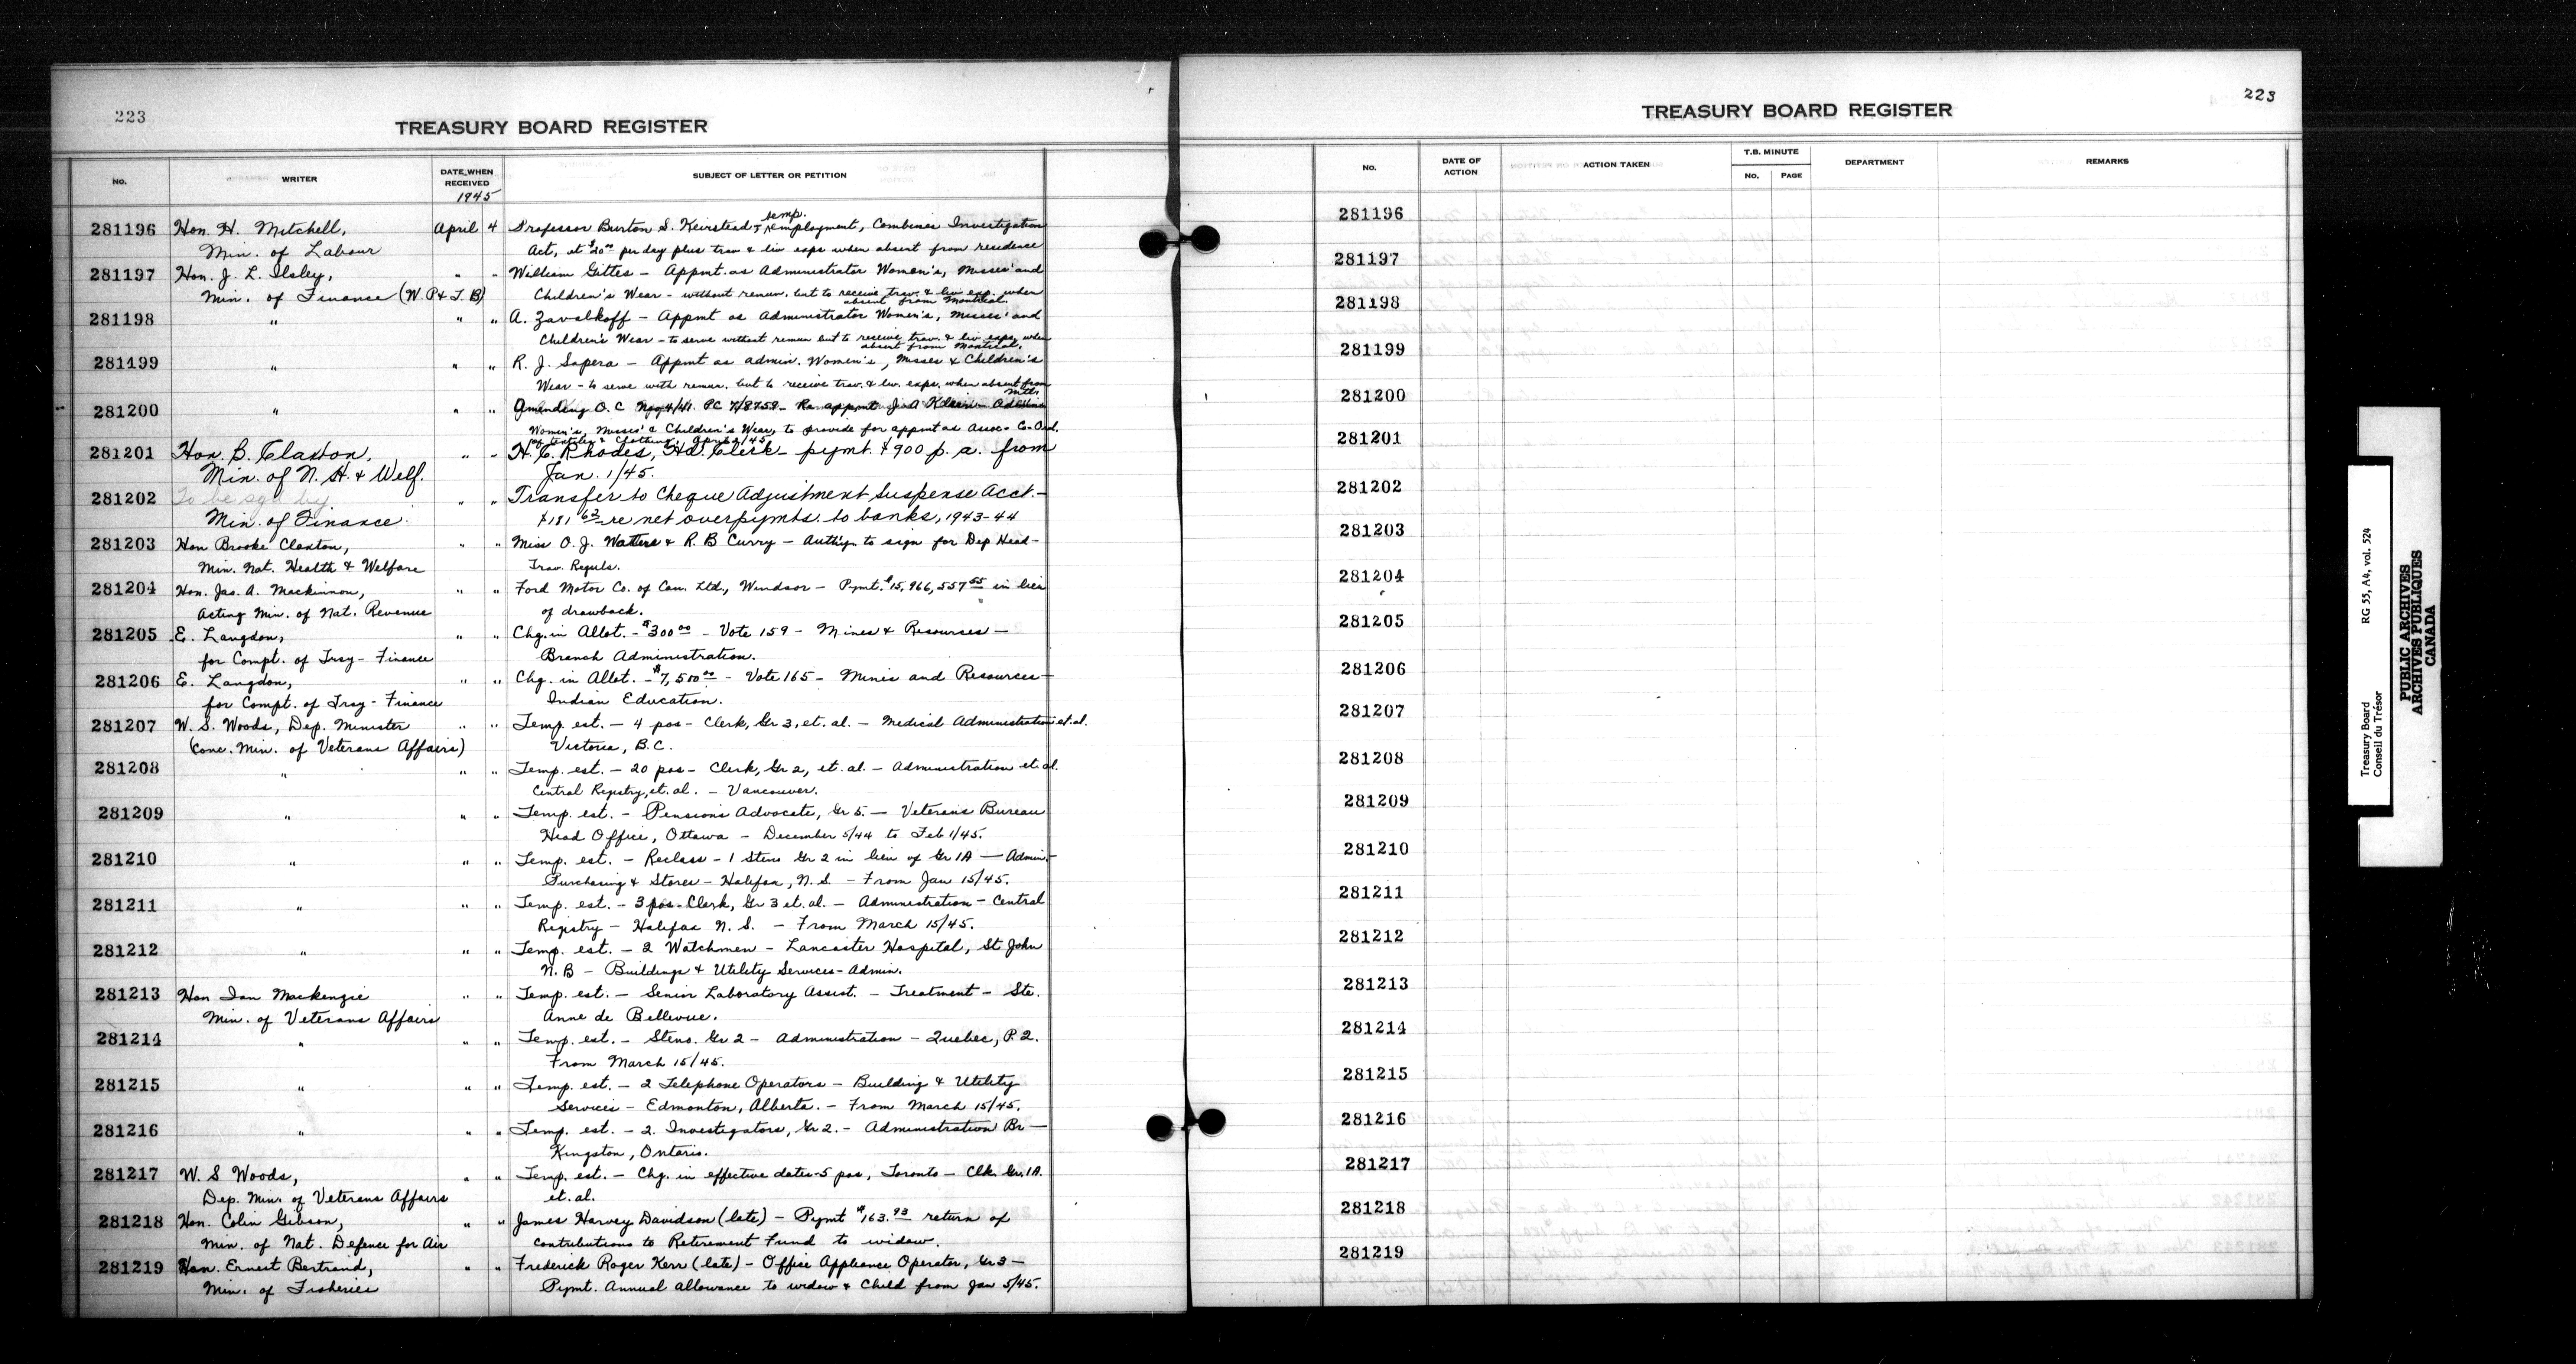 223
TREASURY BOARD REGISTER
No. WRITER DATE WHEN RECEIVED SUBJECT OF LETTER OR PETITION
1945
281196 Hon. H. Mitchell, April 4 Professor Burton S. Keirstead - temp. employment, Combines Investigation
Min. of Labour Act, at $20.00 per day plus trav & liv exps when absent from residence
281197 Hon. J. L. Ilsley, " " William Gittes - Appmt. as Administrator Women's, Misses' and
Min. of Finance (W. P & T. B) Children's Wear - without remun. but to receive trav. & liv exp. when
absent from Montreal.
281198 " " " A. Zavalkoff - Appmt as Administrator Women's, Misses' and
Children's Wear - to serve without remun but to receive trav. & liv exps. when
absent from Montreal.
281199 " " " R. J. Sapera - Appmt as admin. Women's, Misses & Children's
Wear - to serve with remun. but to receive trav. & liv. exps. when absent from
Mtl.
281200 " " " Amending O.C. PC 7/8759 - Re appmt J. A Klein - Admin
Women's, Misses' & Children's Wear, to provide for appmt as Assoc- Co-Ord.
of textiles & Clothing April 2/45
281201 Hon. B. Claxton, " " H. C. Rhodes, Hd. Clerk - pymt. $900 p. a. from
Min. of N. H. & Welf. Jan. 1/45.
281202 To be sgd by " " Transfer to Cheque Adjustment Suspense Acct. -
Min. of Finance. $181 63 re net overpymts. to banks, 1943-44
281203 Hon Brooke Claxton, " " Miss O. J. Watters & R. B Curry - Auth'y. to sign for Dep Head -
Min. Nat. Health & Welfare Trav. Reguls.
281204 Hon. Jas. A. Mackinnon, " " Ford Motor Co. of Can. Ltd., Windsor - Pymt. $15,966,557 55 in lieu
Acting Min. of Nat. Revenue of drawback.
281205 E. Langdon, " " Chg. in Allot. - $300 00 - Vote 159 - Mines & Resources -
for Compt. of Trsy - Finance Branch Administration.
281206 E. Langdon, " " Chg. in Allot. - $7,500 00 - Vote 165 - Mines and Resources -
for Compt. of Trsy - Finance Indian Education.
281207 W. S. Woods, Dep. Minister " " Temp. est. - 4 pos - Clerk, Gr 3, et. al. - Medical Administration et. al.
(conc. Min. of Veterans Affairs) Victoria, B.C.
281208 " " " Temp. est. - 20 pos - Clerk, Gr 2, et. al. - Administration et. al.
Central Registry, et. al. - Vancouver.
281209 " " " Temp. est. - Pensions Advocate, Gr 5. - Veterans Bureau
Head Office, Ottawa - December 5/44 to Feb 1/45.
281210 " " " Temp. est. - Reclass - 1 Steno Gr 2 in lieu of Gr 1A - Admin. -
Purchasing & Stores - Halifax, N. S. - From Jan 15/45.
281211 " " " Temp. est. - 3 pos - Clerk, Gr 3 et. al. - Administration - Central
Registry - Halifax N. S. - From March 15/45.
281212 " " " Temp. est. - 2 Watchmen - Lancaster Hospital, St John
N. B - Buildings & Utility Services - Admin.
281213 Hon Ian Mackenzie " " Temp. est. - Senior Laboratory Assist. - Treatment - Ste.
Min. of Veterans Affairs Anne de Bellevue.
281214 " " " Temp. est. - Steno. Gr 2 - Administration - Quebec, P. Q.
From March 15/45.
281215 " " " Temp. est. - 2 Telephone Operators - Building & Utility
Services - Edmonton, Alberta. - From March 15/45.
281216 " " " Temp. est. - 2. Investigators, Gr 2. - Administration Br -
Kingston, Ontario.
281217 W. S Woods, " " Temp. est. - Chg. in effective dates - 5 pos, Toronto - Clk Gr. 1A.
Dep. Min. of Veterans Affairs et. al.
281218 Hon. Colin Gibson, " " James Harvey Davidson (late) - Pymt $163.93 return of
Min. of Nat. Defence for Air contributions to Retirement Fund to widow.
281219 Hon. Ernest Bertrand, " " Frederick Roger Kerr (late) - Office Appliance Operator, Gr 3 -
Min. of Fisheries Pymt. Annual allowance to widow & Child from Jan 5/45.
223
TREASURY BOARD REGISTER
No. DATE OF ACTION ACTION TAKEN T.B. MINUTE No. PAGE DEPARTMENT REMARKS
281196
281197
281198
281199
281200
281201
281202
281203
281204
281205
281206
281207
281208
281209
281210
281211
281212
281213
281214
281215
281216
281217
281218
281219
Treasury Board RG 55, A4, vol. 524
Conseil du Trésor
PUBLIC ARCHIVES
ARCHIVES PUBLIQUES
CANADA